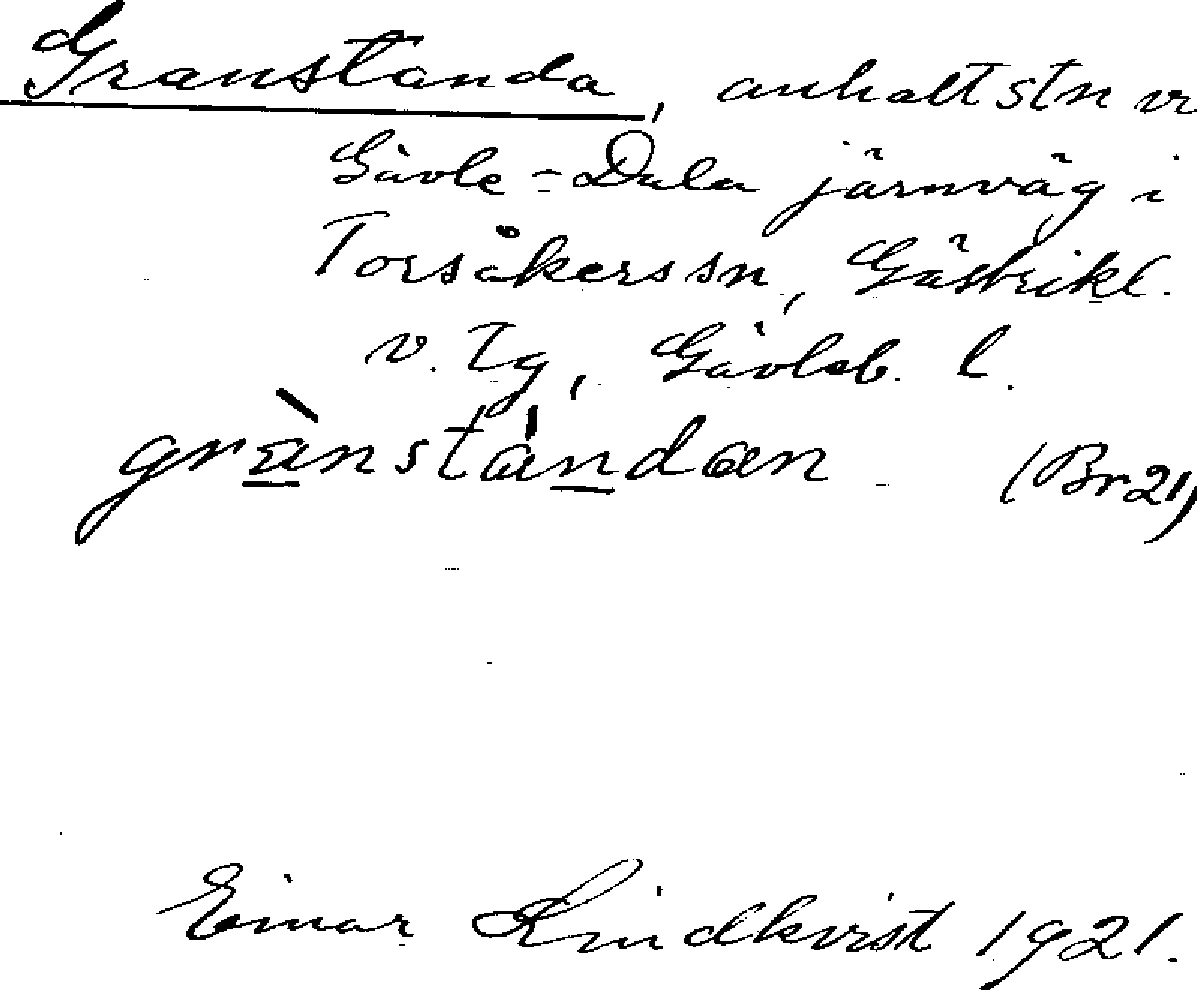 Granstanda, anhaltstn vr
Gävle-Dala järnväg i
Torsåkers sn, Gästrikl.
v. Tg, Gävleb. l.
grànstándan (Br21)
Einar Lindkvist 1921.